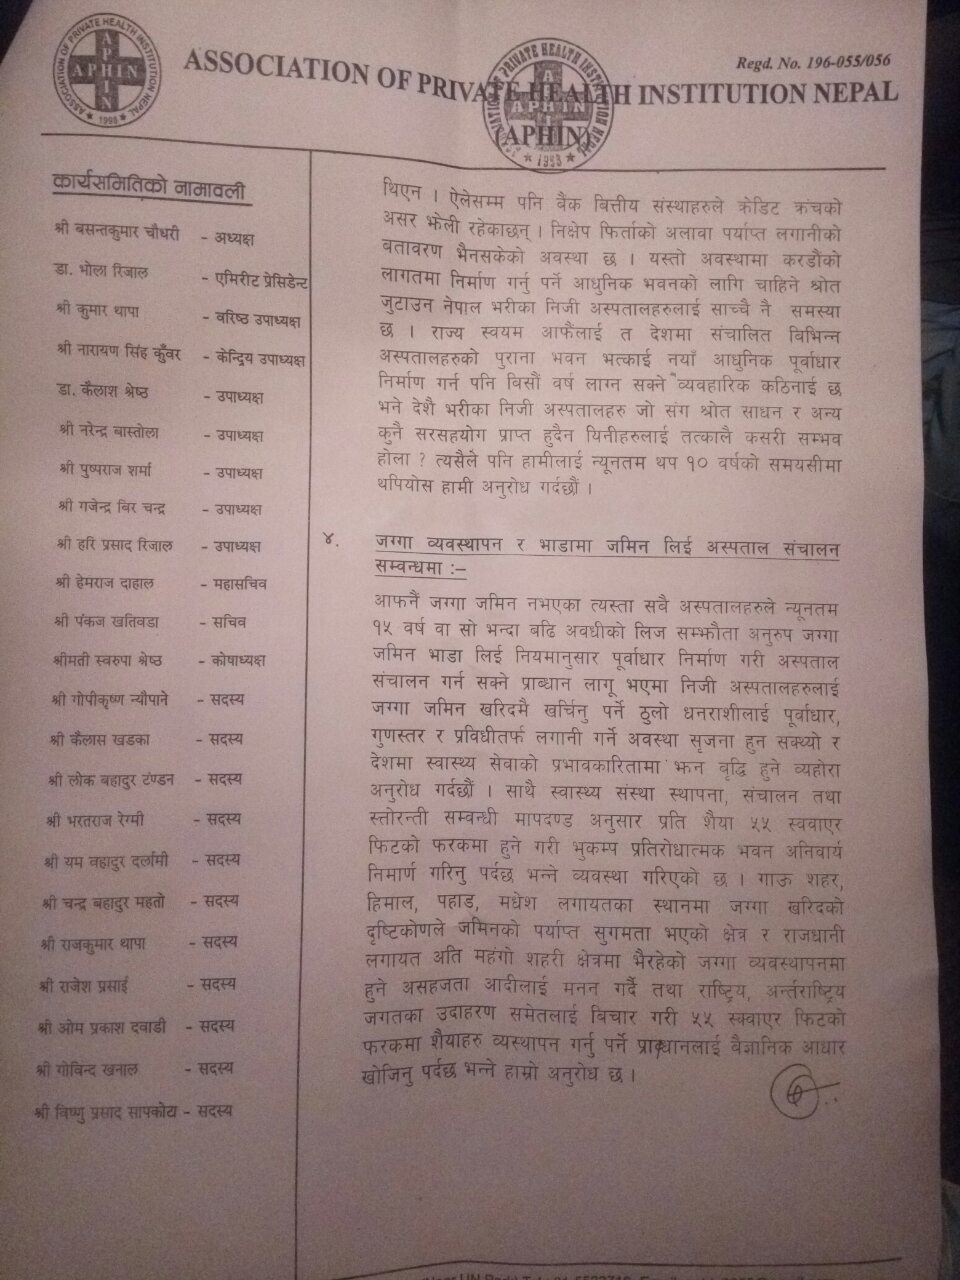 Regd. No. 196-055/056
ASSOCIATION OF PRIVATE HEALTH INSTITUTION NEPAL
(APHIN)
ASSOCIATION OF PRIVATE HEALTH INSTITUTION NEPAL
APHIN
1998
कार्यसमितिको नामावली
श्री बसन्तकुमार चौधरी - अध्यक्ष
डा. भोला रिजाल - एमिरीट प्रेसिडेन्ट
श्री कुमार थापा - वरिष्ठ उपाध्यक्ष
श्री नारायण सिंह कुँवर - केन्द्रिय उपाध्यक्ष
डा. कैलाश श्रेष्ठ - उपाध्यक्ष
श्री नरेन्द्र बास्तोला - उपाध्यक्ष
श्री पुष्पराज शर्मा - उपाध्यक्ष
श्री गजेन्द्र बिर चन्द्र - उपाध्यक्ष
श्री हरि प्रसाद रिजाल - उपाध्यक्ष
श्री हेमराज दाहाल - महासचिव
श्री पंकज खतिवडा - सचिव
श्रीमती स्वरुपा श्रेष्ठ - कोषाध्यक्ष
श्री गोपीकृष्ण न्यौपाने - सदस्य
श्री कैलास खडका - सदस्य
श्री लोक बहादुर टंण्डन - सदस्य
श्री भरतराज रेग्मी - सदस्य
श्री यम वहादुर दर्लामी - सदस्य
श्री चन्द्र बहादुर महतो - सदस्य
श्री राजकुमार थापा - सदस्य
श्री राजेश प्रसाई - सदस्य
श्री ओम प्रकाश दवाडी - सदस्य
श्री गोविन्द खनाल - सदस्य
श्री विष्णु प्रसाद सापकोटा - सदस्य
थिएन । ऐलेसम्म पनि बैंक बित्तीय संस्थाहरुले क्रेडिट क्रंचको
असर झेली रहेकाछन् । निक्षेप फिर्ताको अलावा पर्याप्त लगानीको
बतावरण भैनसकेको अवस्था छ । यस्तो अवस्थामा करडौंको
लागतमा निर्माण गर्नु पर्ने आधुनिक भवनको लागि चाहिने श्रोत
जुटाउन नेपाल भरीका निजी अस्पतालहरुलाई साच्चै नै समस्या
छ । राज्य स्वयम आफैंलाई त देशमा संचालित बिभिन्न
अस्पतालहरुको पुराना भवन भत्काई नयाँ आधुनिक पूर्वाधार
निर्माण गर्न पनि विसौं वर्ष लाग्न सक्ने व्यवहारिक कठिनाई छ
भने देशै भरीका निजी अस्पतालहरु जो संग श्रोत साधन र अन्य
कुनै सरसहयोग प्राप्त हुदैन यिनीहरुलाई तत्कालै कसरी सम्भव
होला ? त्यसैले पनि हामीलाई न्यूनतम थप १० वर्षको समयसीमा
थपियोस हामी अनुरोध गर्दछौं ।
४. जग्गा व्यवस्थापन र भाडामा जमिन लिई अस्पताल संचालन
सम्वन्धमा :–
आफनैं जग्गा जमिन नभएका त्यस्ता सबै अस्पतालहरुले न्यूनतम
१५ वर्ष वा सो भन्दा बढि अवधीको लिज सम्झौता अनुरुप जग्गा
जमिन भाडा लिई नियमानुसार पूर्वाधार निर्माण गरी अस्पताल
संचालन गर्न सक्ने प्राब्धान लागू भएमा निजी अस्पतालहरुलाई
जग्गा जमिन खरिदमै खर्चिनु पर्ने ठुलो धनराशीलाई पूर्वाधार,
गुणस्तर र प्रविधीतर्फ लगानी गर्ने अवस्था सृजना हुन सक्थ्यो र
देशमा स्वास्थ्य सेवाको प्रभावकारितामा झन वृद्धि हुने व्यहोरा
अनुरोध गर्दछौं । साथै स्वास्थ्य संस्था स्थापना, संचालन तथा
स्तोरन्ती सम्वन्धी मापदण्ड अनुसार प्रति शैया ५५ स्ववाएर
फिटको फरकमा हुने गरी भुकम्प प्रतिरोधात्मक भवन अनिवार्य
निमार्ण गरिनु पर्दछ भन्ने व्यवस्था गरिएको छ । गाऊ शहर,
हिमाल, पहाड, मधेश लगायतका स्थानमा जग्गा खरिदको
दृष्टिकोणले जमिनको पर्याप्त सुगमता भएको क्षेत्र र राजधानी
लगायत अति महंगो शहरी क्षेत्रमा भैरहेको जग्गा व्यवस्थापनमा
हुने असहजता आदीलाई मनन गर्दै तथा राष्ट्रिय, अर्न्तराष्ट्रिय
जगतका उदाहरण समेतलाई बिचार गरी ५५ स्क्वाएर फिटको
फरकमा शैयाहरु व्यस्थापन गर्नु पर्ने प्राब्धानलाई वैज्ञानिक आधार
खोजिनु पर्दछ भन्ने हाम्रो अनुरोध छ ।